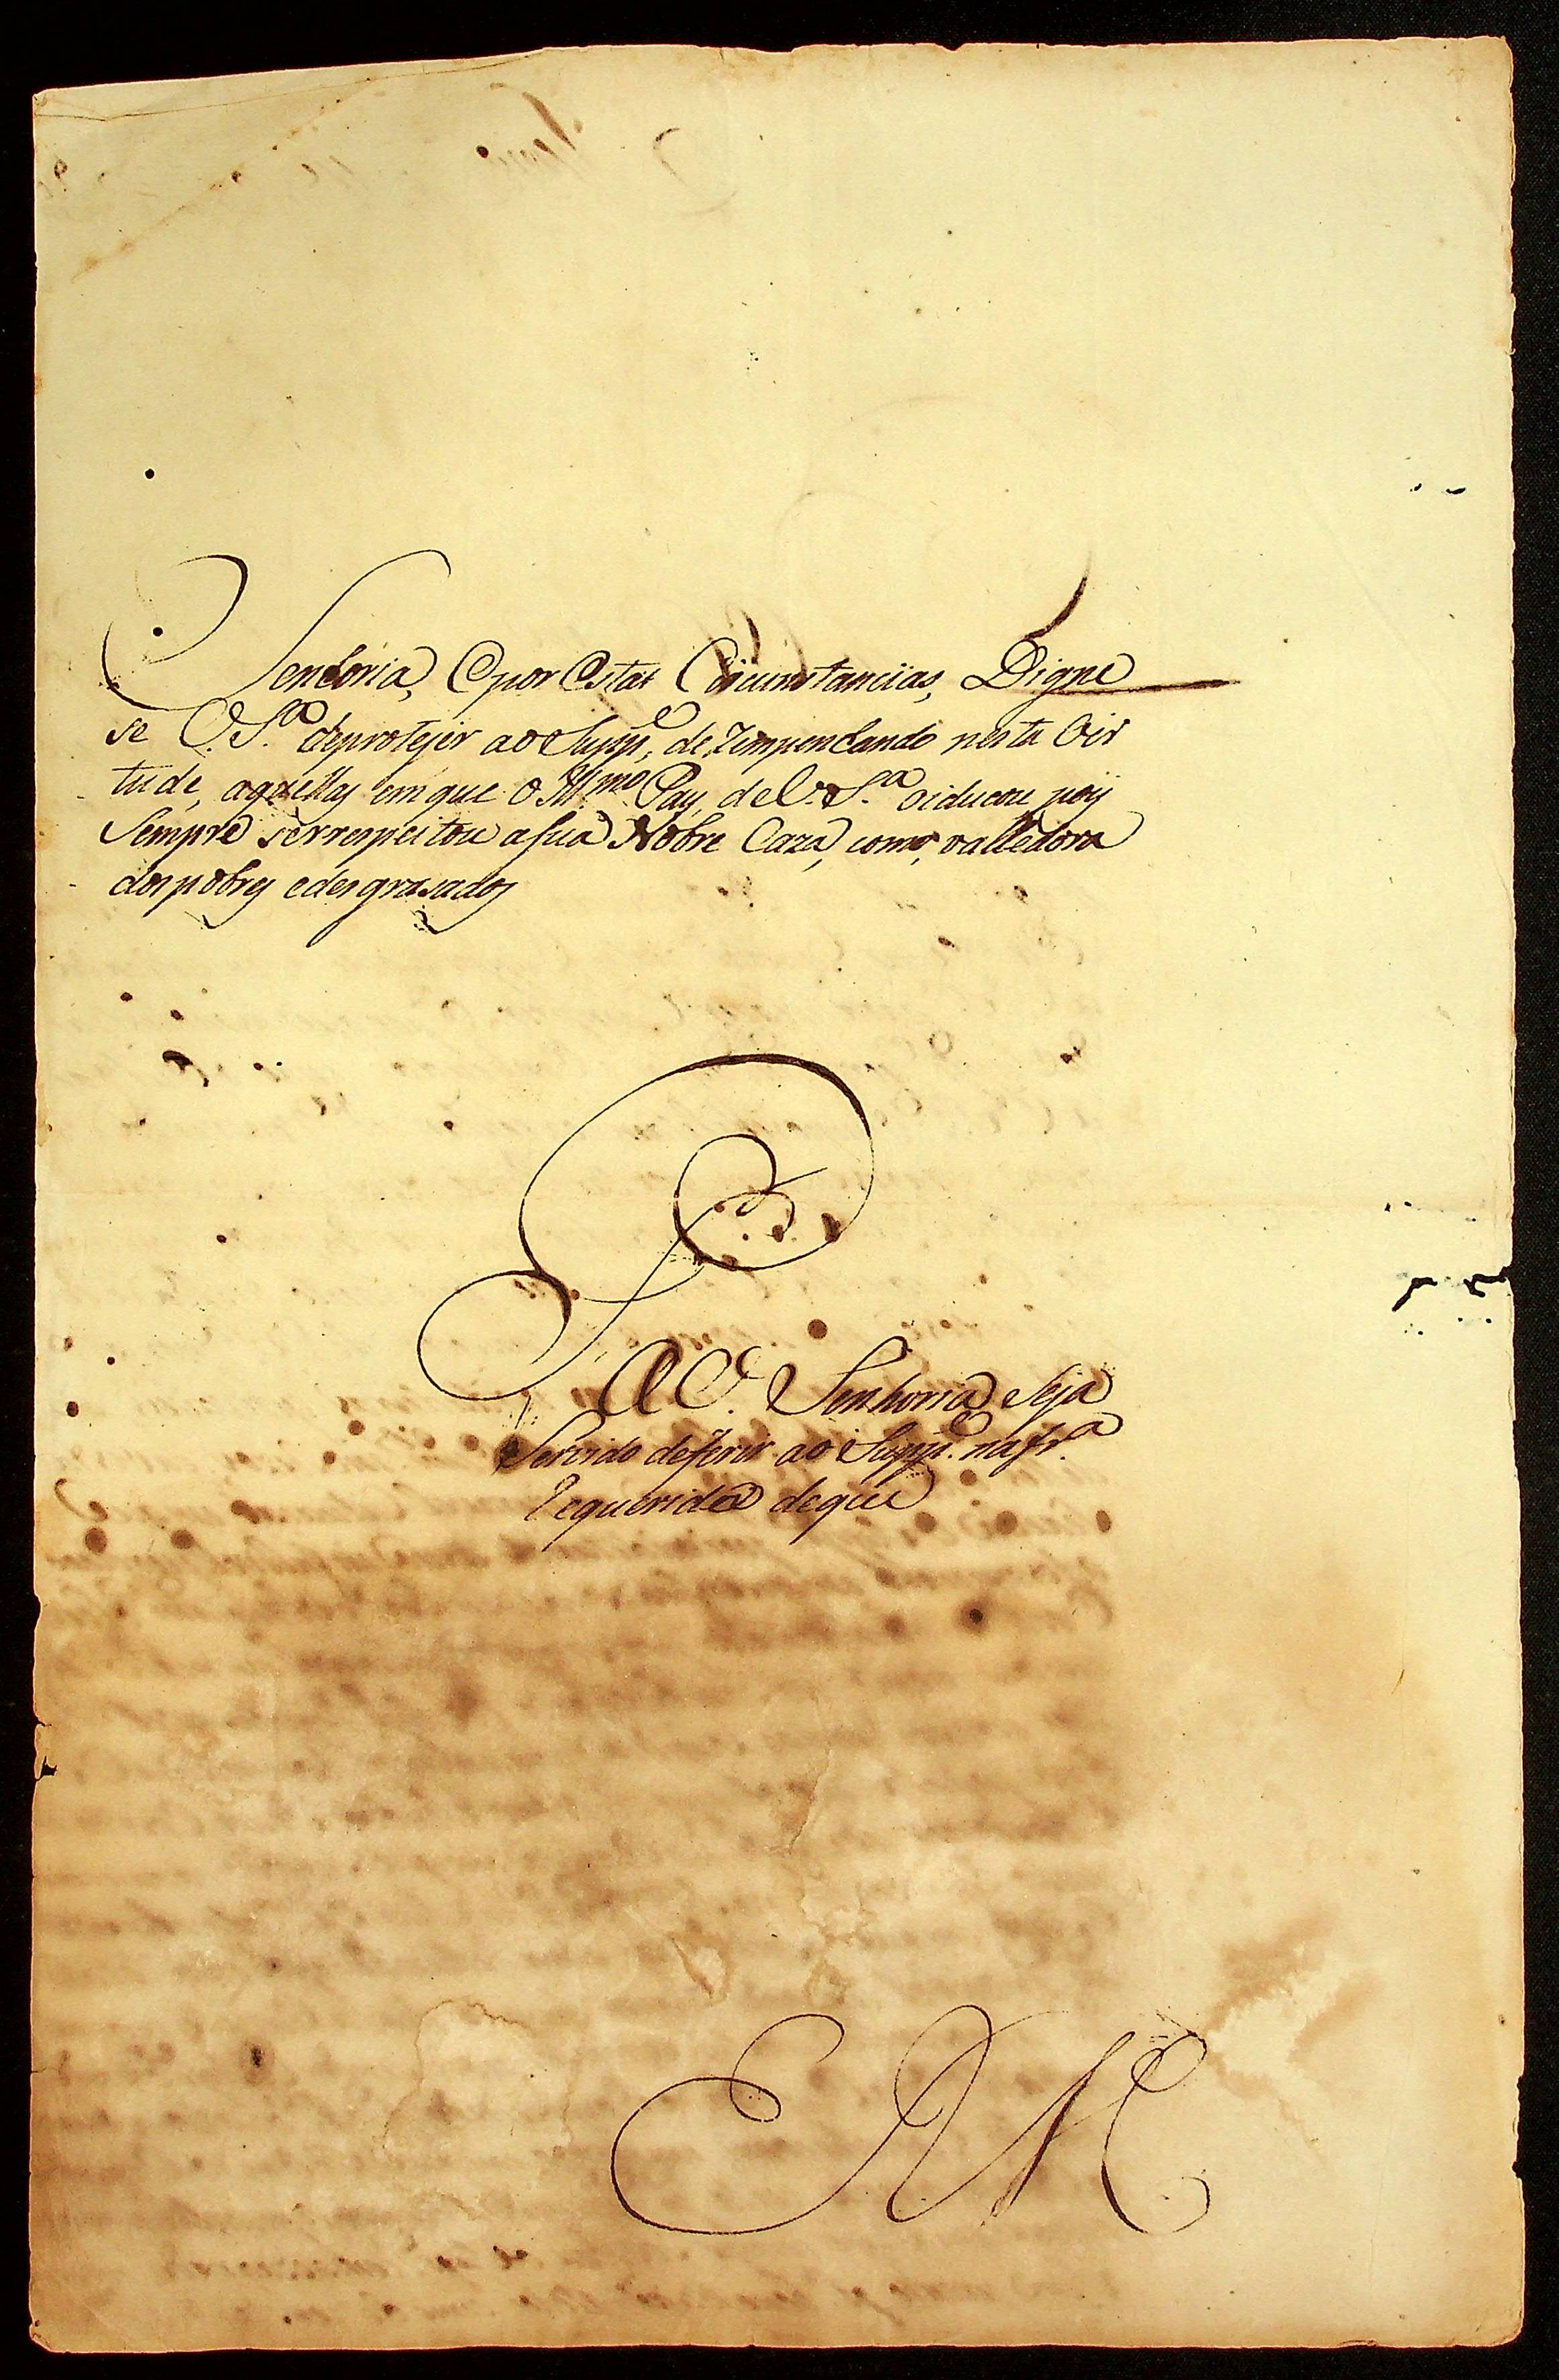 Senhoria, E por Estas Circunstancias, Digne
se V. S.ª de protejer ao Supp.e, dezempenhando nesta Vir
tude, aquellas em que o Ill.mo Pay, de V. S.ª o iducou poiz
Sempre serrespeitou a sua Nobre Caza, como, valledora
dos pobres e desgrasados
P
A V. Senhoria Seja
Servido deferir ao Supp.e na fr.ª
Requerida de que
E R M